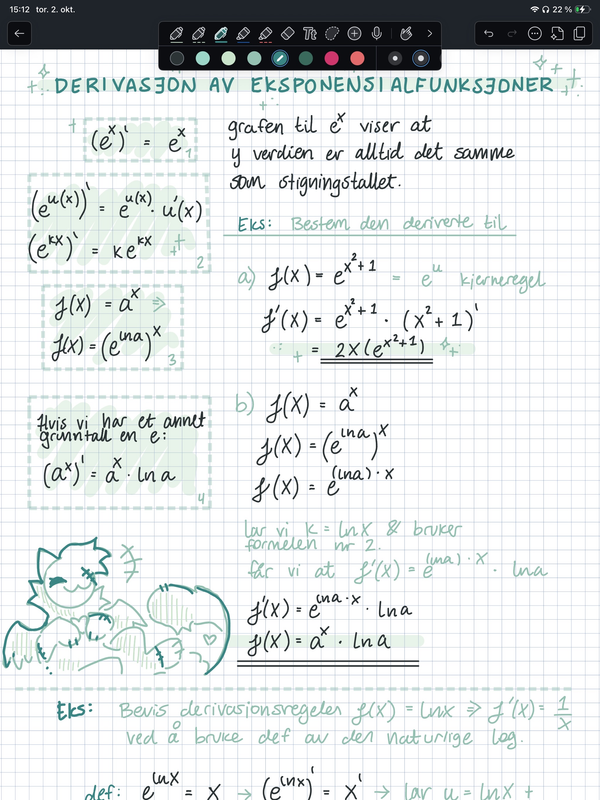 15:12 tor. 2. okt.
22 %
DERIVASJON AV EKSPONENSIALFUNKSJONER
(e^x)' = e^x
1
(e^u(x))' = e^u(x) · u'(x)
(e^kx)' = ke^kx
2
f(x) = a^x ⇒
f(x) = (e^lna)^x
3
Hvis vi har et annet
grunntall en e:
(a^x)' = a^x · ln a
4
grafen til e^x viser at
y verdien er alltid det samme
som stigningstallet.
Eks: Bestem den deriverte til
a) f(x) = e^x²+1 = e^u kjerneregel
f'(x) = e^x²+1 · (x²+1)'
= 2x(e^x²+1)
b) f(x) = a^x
f(x) = (e^lna)^x
f(x) = e^(lna)·x
lar vi k = lnx & bruker
formelen nr 2.
får vi at f'(x) = e^(lna)·x · lna
f'(x) = e^lna·x · lna
f(x) = a^x · lna
Eks: Bevis derivasjonsregelen f(x) = lnx ⇒ f'(x) = 1/x
ved å bruke def av den naturlige log.
def: e^lnx = x → (e^lnx)' = x' → lar u = lnx +